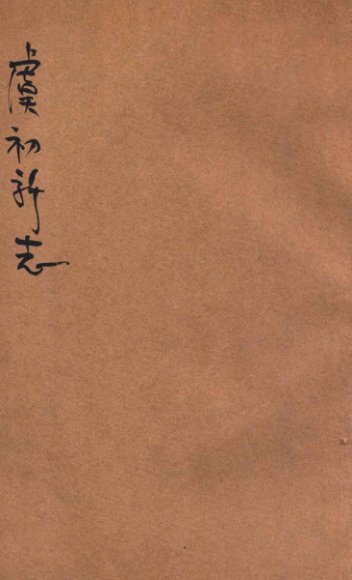 虞初新志